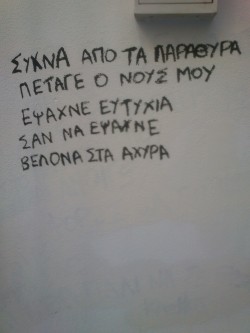 ΣΥΧΝΑ ΑΠΟ ΤΑ ΠΑΡΑΘΥΡΑ
ΠΕΤΑΓΕ Ο ΝΟΥΣ ΜΟΥ
ΕΨΑΧΝΕ ΕΥΤΥΧΙΑ
ΣΑΝ ΝΑ ΕΨΑΧΝΕ
ΒΕΛΟΝΑ ΣΤΑ ΑΧΥΡΑ